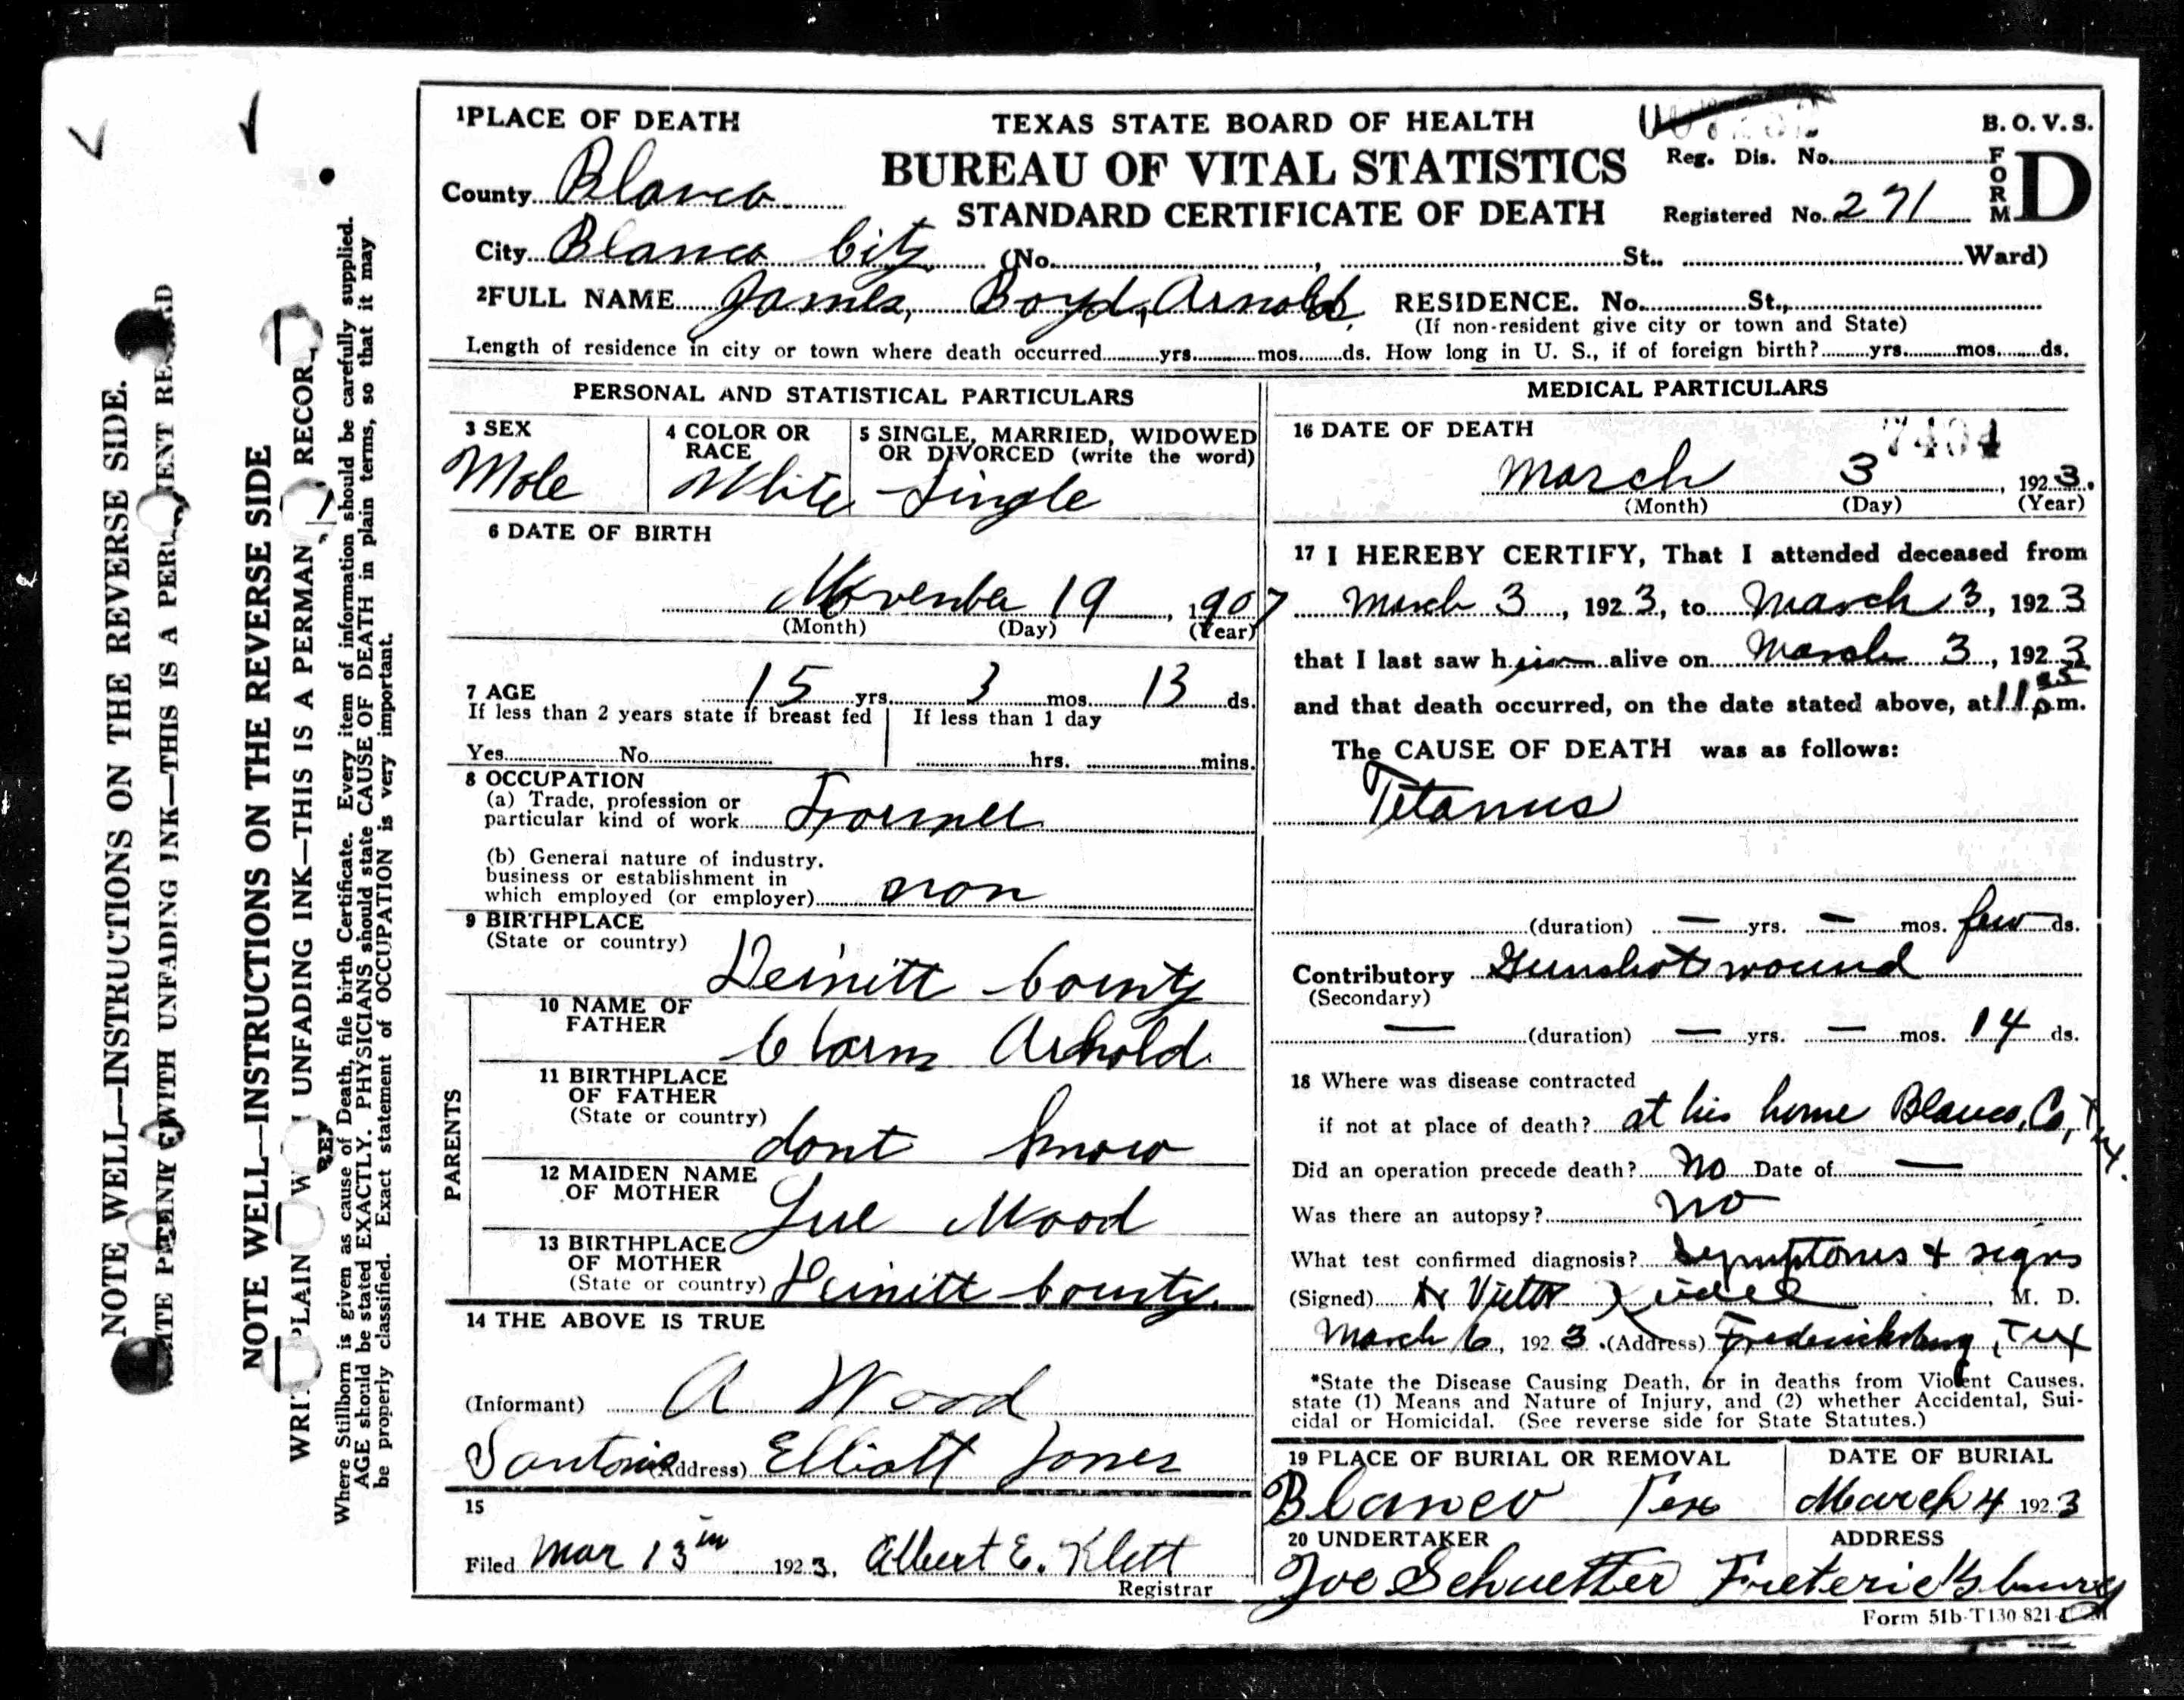 1PLACE OF DEATH
TEXAS STATE BOARD OF HEALTH
B. O. V. S.
County Blanco
BUREAU OF VITAL STATISTICS
Reg. Dis. No.
FORM D
STANDARD CERTIFICATE OF DEATH
Registered No. 271
City Blanco City (No. , St. Ward)
2FULL NAME James, Boyd, Arnold, RESIDENCE. No. St.,
(If non-resident give city or town and State)
Length of residence in city or town where death occurred yrs. mos. ds. How long in U. S., if of foreign birth? yrs. mos. ds.
PERSONAL AND STATISTICAL PARTICULARS
3 SEX
Male
4 COLOR OR RACE
White
5 SINGLE, MARRIED, WIDOWED
OR DIVORCED (write the word)
Single
6 DATE OF BIRTH
November 19, 1907
(Month) (Day) (Year)
7 AGE 15 yrs. 3 mos. 13 ds.
If less than 2 years state if breast fed
If less than 1 day
Yes No
hrs. mins.
8 OCCUPATION
(a) Trade, profession or
particular kind of work Farmer
(b) General nature of industry,
business or establishment in
which employed (or employer) non
9 BIRTHPLACE
(State or country)
County
PARENTS
10 NAME OF
FATHER
Arnold
11 BIRTHPLACE
OF FATHER
(State or country)
dont know
12 MAIDEN NAME
OF MOTHER
Sue Wood
13 BIRTHPLACE
OF MOTHER
(State or country) County.
14 THE ABOVE IS TRUE
(Informant) A Wood
(Address) Elliott Jones
15
Filed Mar 13 1923, Albert E. Klett
Registrar
MEDICAL PARTICULARS
16 DATE OF DEATH
7404
March 3, 1923.
(Month) (Day) (Year)
17 I HEREBY CERTIFY, That I attended deceased from
March 3, 1923, to March 3, 1923
that I last saw him alive on March 3, 1923
and that death occurred, on the date stated above, at 11 pm.
The CAUSE OF DEATH was as follows:
Tetanus
(duration) — yrs. — mos. few ds.
Contributory Gunshot wound
(Secondary)
— (duration) — yrs. — mos. 14 ds.
18 Where was disease contracted
if not at place of death? at his home Blanco, Co, Tex.
Did an operation precede death? No Date of —
Was there an autopsy? No
What test confirmed diagnosis? Symptoms & signs
(Signed) Victor Keidel, M. D.
March 6, 1923. (Address) Fredericksburg, Tex
*State the Disease Causing Death, or in deaths from Violent Causes,
state (1) Means and Nature of Injury, and (2) whether Accidental, Sui-
cidal or Homicidal. (See reverse side for State Statutes.)
19 PLACE OF BURIAL OR REMOVAL
Blanco Tex
DATE OF BURIAL
March 4 1923
20 UNDERTAKER
Joe Schuetter
ADDRESS
Freterieksburg
Form 51b-T130-821
NOTE WELL—INSTRUCTIONS ON THE REVERSE SIDE.
WITH UNFADING INK—THIS IS A
NOTE WELL—INSTRUCTIONS ON THE REVERSE SIDE
UNFADING INK—THIS IS A PERMAN RECOR
Where Stillborn is given as cause of Death, file birth Certificate. Every item of information should be carefully supplied.
AGE should be stated EXACTLY. PHYSICIANS should state CAUSE OF DEATH in plain terms, so that it may
be properly classified. Exact statement of OCCUPATION is very important.